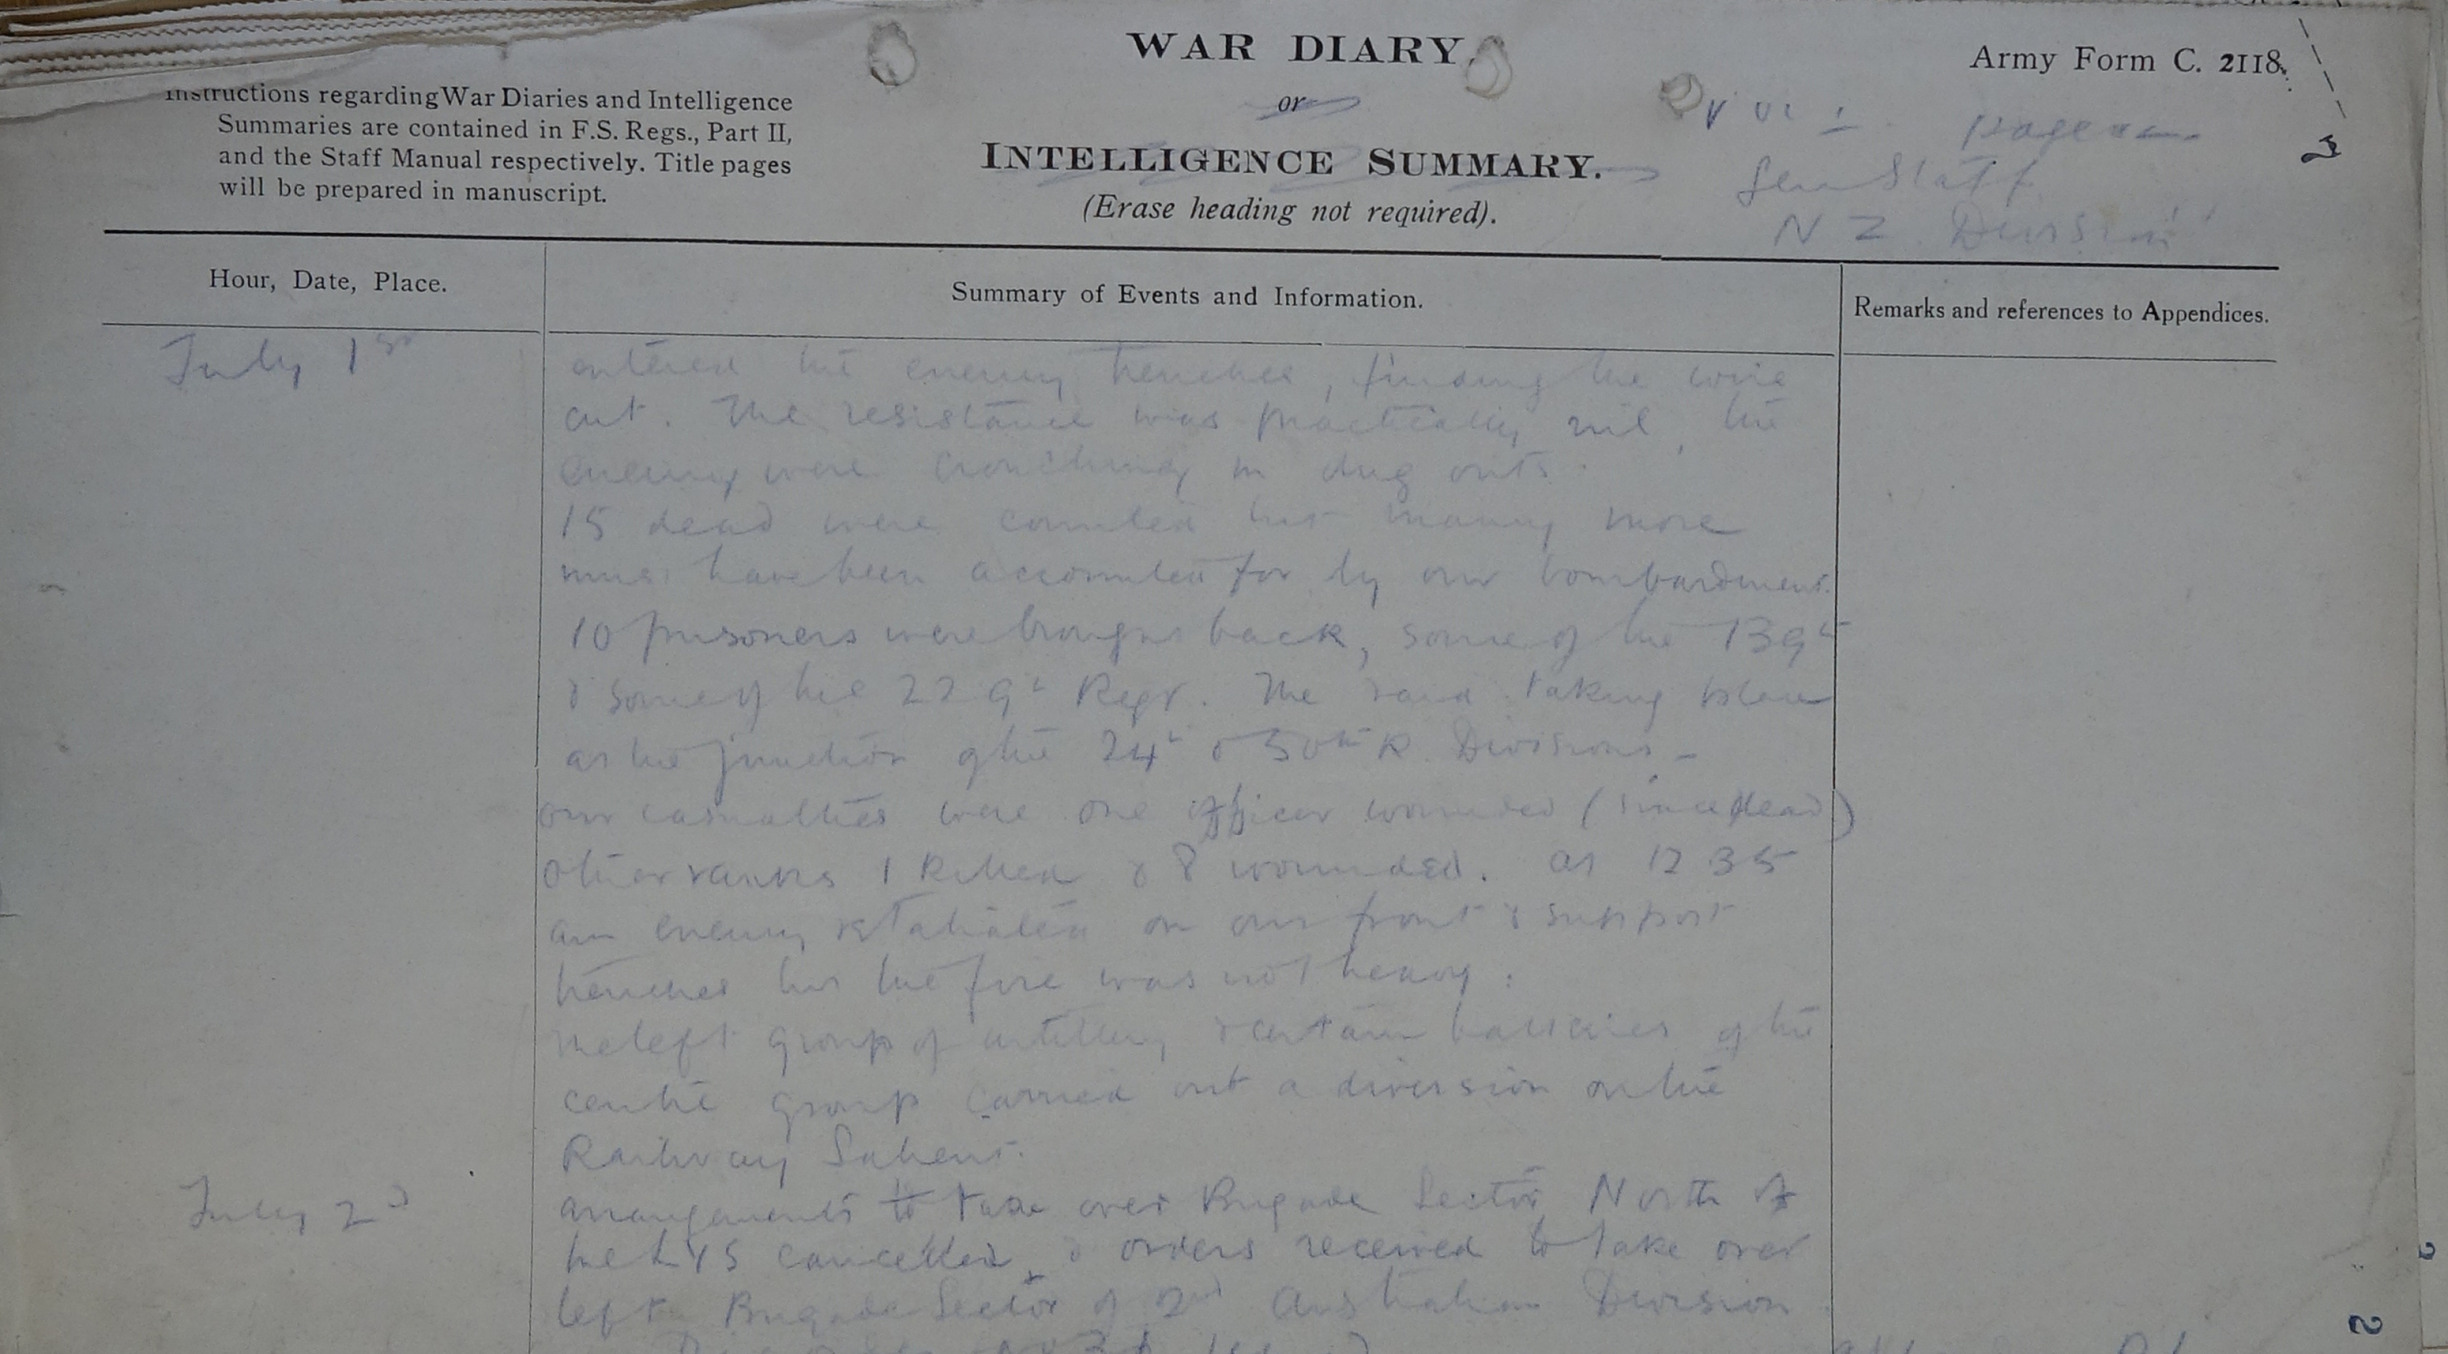 WAR DIARY
Army Form C. 2118.
Instructions regarding War Diaries and Intelligence
Summaries are contained in F.S. Regs., Part II,
and the Staff Manual respectively. Title pages
will be prepared in manuscript.
or
INTELLIGENCE SUMMARY.
(Erase heading not required).
Gen Staff
N Z Division
Hour, Date, Place.
Summary of Events and Information.
Remarks and references to Appendices.
July 1st
entered the enemy trenches, finding the wire
cut. The resistance was practically nil, the
enemy were crouching in dug outs.
15 dead were counted but many more
must have been accounted for by our bombardment.
10 prisoners were brought back, some of the 139th
& some of the 229th Regt. The raid taking place
at the junction of the 24th & 50th R. Divisions -
our casualties were one officer wounded (since dead)
other ranks 1 killed & 8 wounded. at 12 35
am enemy retaliated on our front & support
trenches but the fire was not heavy.
The left group of artillery & certain batteries of the
centre group carried out a diversion on the
Railway Salient.
July 2nd
arrangements to take over Brigade Sector North of
the LYS cancelled, & orders received to take over
left Brigade Sector of 2nd Australian Division
2